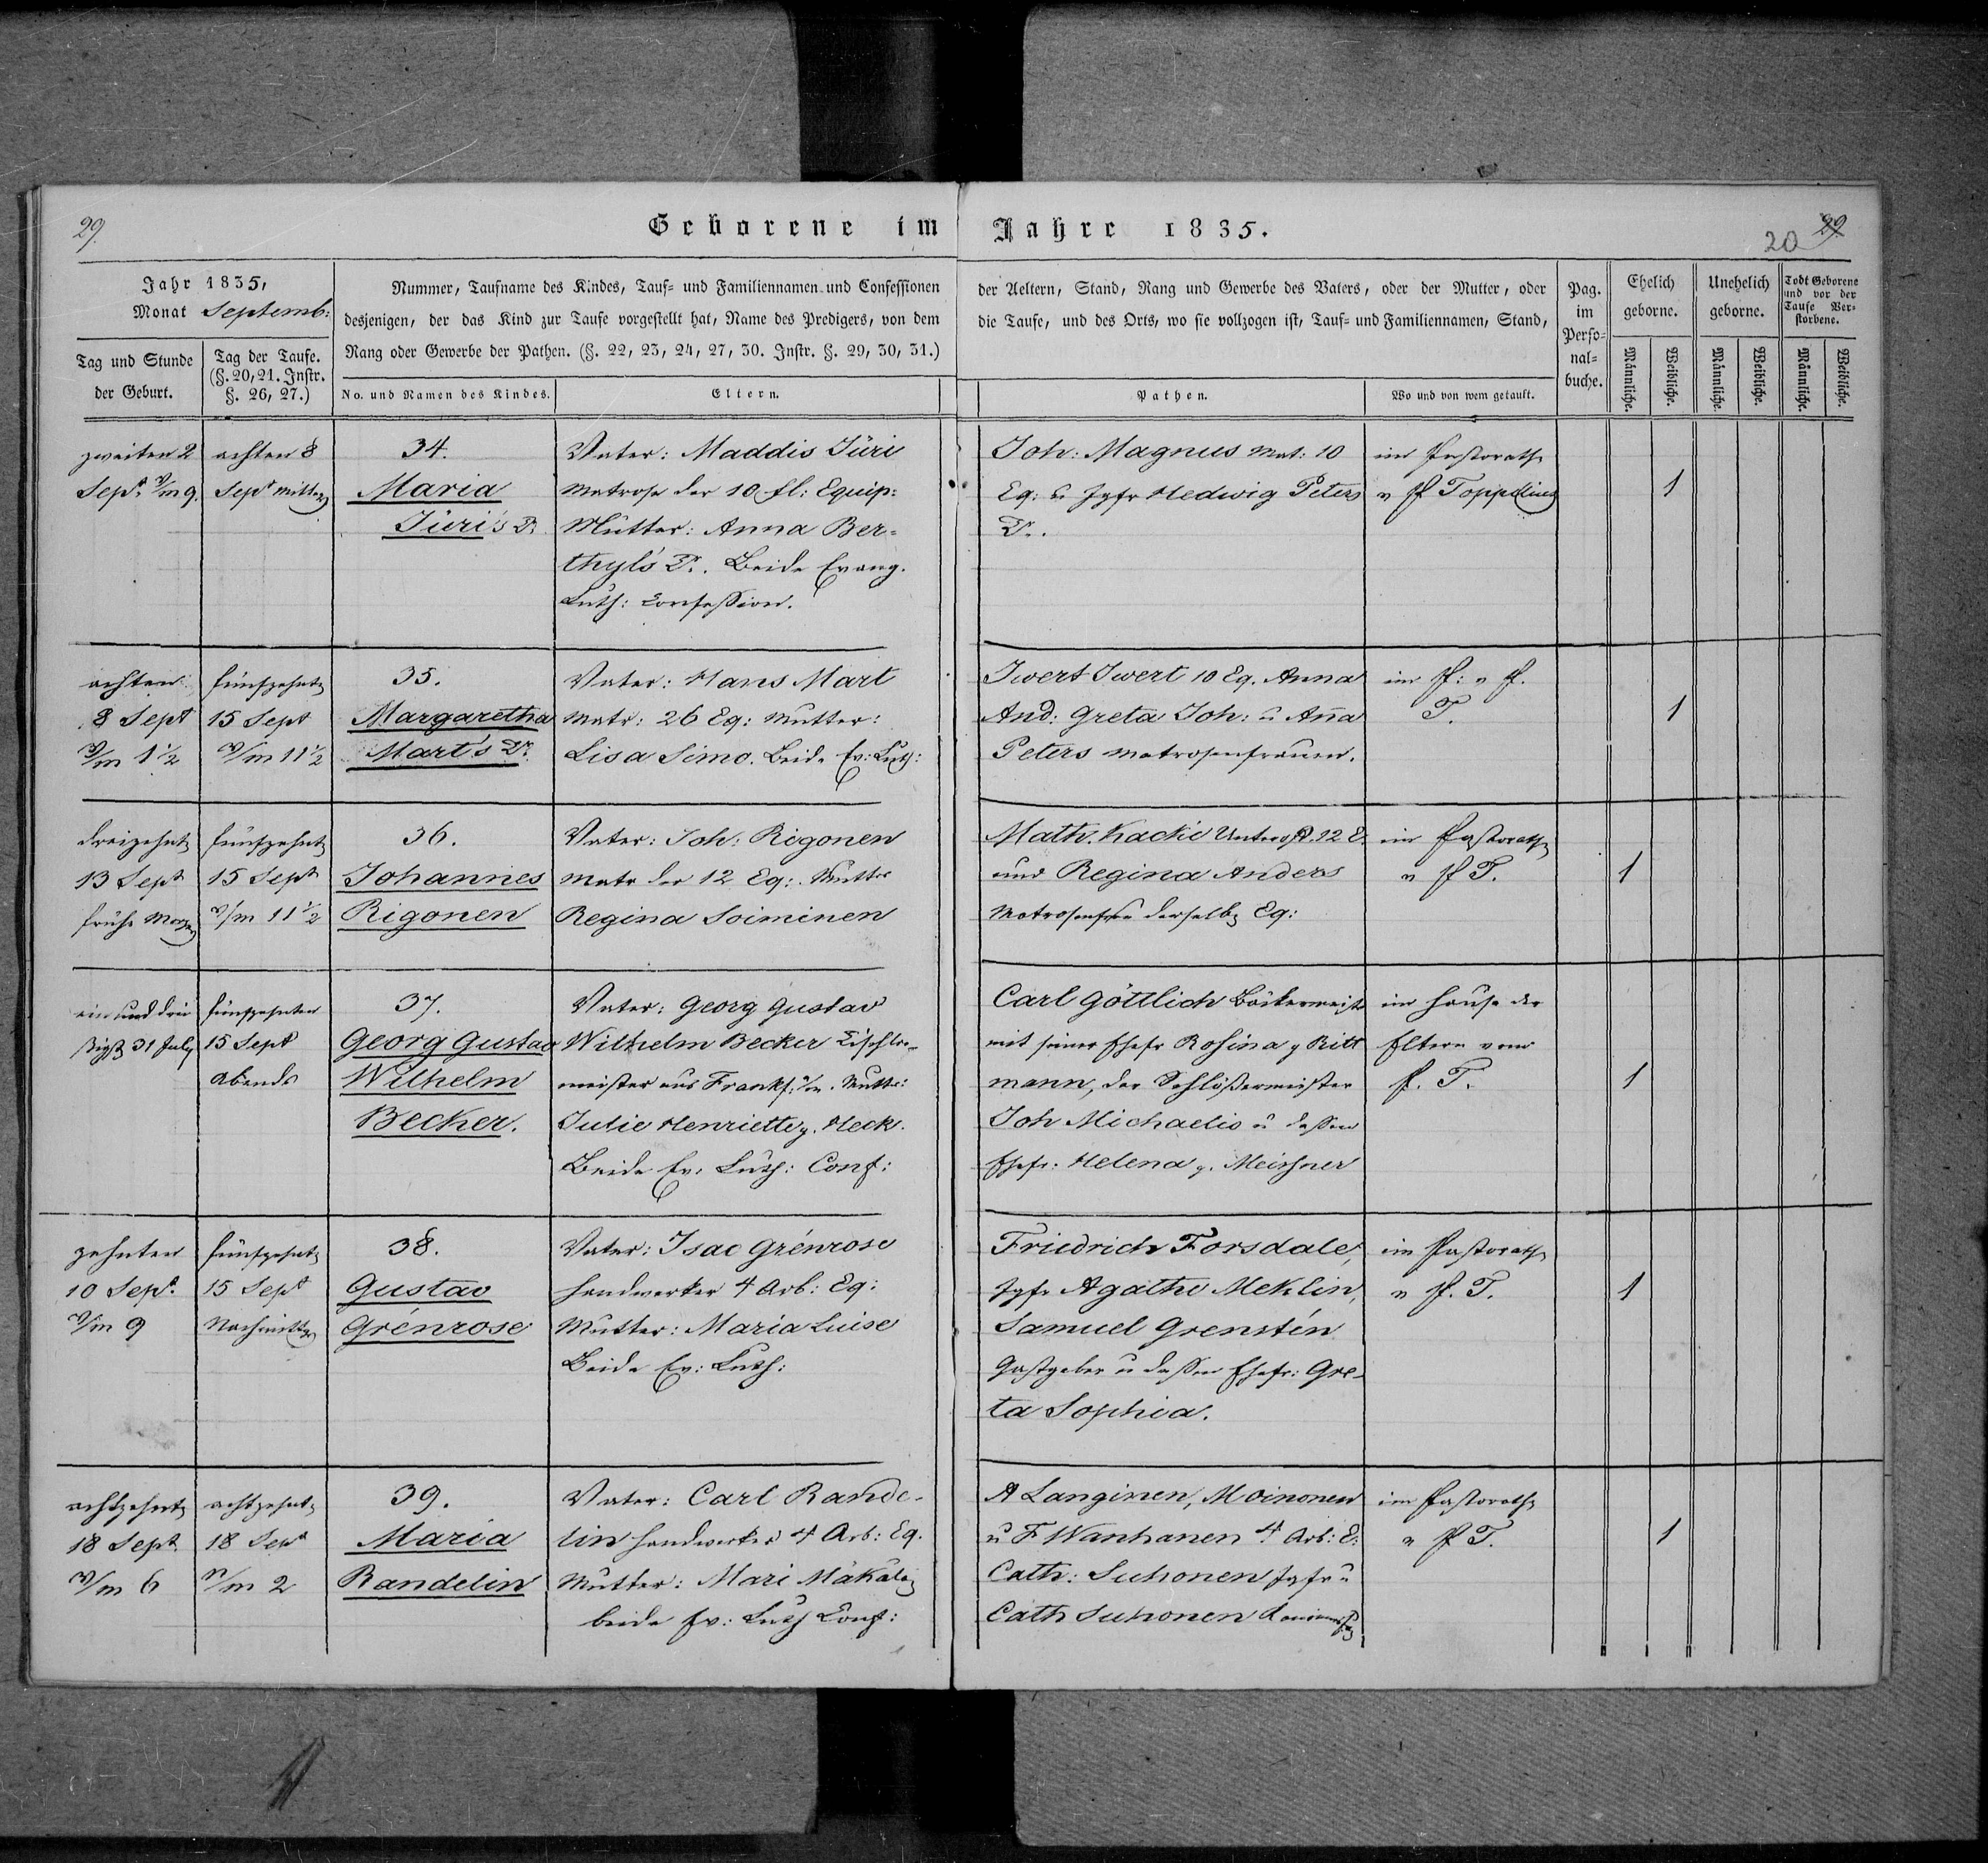 29.
Geborene im Jahre 1835.
20 29
Jahr 1835,
Monat Septemb:
Tag und Stunde
der Geburt.
Tag der Taufe.
(§. 20, 21. Instr.
§. 26, 27.)
Nummer, Taufname des Kindes, Tauf- und Familiennamen und Confessionen
desjenigen, der das Kind zur Taufe vorgestellt hat, Name des Predigers, von dem
Rang oder Gewerbe der Pathen. (§. 22, 23, 24, 27, 30. Instr. §. 29, 30, 31.)
No. und Namen des Kindes.
Eltern.
der Aeltern, Stand, Rang und Gewerbe des Vaters, oder der Mutter, oder
die Taufe, und des Orts, wo sie vollzogen ist, Tauf- und Familiennamen, Stand,
Pathen.
Wo und von wem getauft.
Pag.
im
Perso-
nal-
buche.
Ehelich
geborne.
Unehelich
geborne.
Todt Geborene
und vor der
Taufe Ver-
storbene.
Männliche.
Weibliche.
Männliche.
Weibliche.
Männliche.
Weibliche.
zweiten 2
Sept. V/m 9.
achten 8
Sept Mittag
34.
Maria
Jüri's Dr.
Vater: Maddis Jüri
Matrose der 10 fl: Equip:
Mutter: Anna Ber-
thyl's Dr. Beide Evang.
Luth: Confession.
Joh: Magnus Mat: 10
Eq: u Jgfr Hedwig Peters
Dr.
im Pastorath
v P Toppelius
1
achten
8 Sept
1 1/2
fünfzehnt
15 Sept
V/m 11 1/2
35.
Margaretha
Mart's Dr.
Vater: Hans Mart
Matr: 26 Eq: Mutter:
Lisa Simo. Beide Ev: Luth:
Iwert Iwert 10 Eq. Anna
And: Greta Joh: u Anna
Peters Matrosenfrauen.
im P: v P.
T.
1
dreizehnt
13 Sept
frühe Morgen
fünfzehnt
15 Sept
V/m 11 1/2
36.
Johannes
Rigonen
Vater: Joh: Rigonen
Matr der 12 Eq: Mutter
Regina Soiminen
Math. Kacki Unteroff. 12 E.
und Regina Anders
Matrosenfrau derselb Eq:
im Pastorath
v P T.
1
ein und drei
ßigst 31 July
fünfzehnten
15 Sept
Abends
37.
Georg Gustav
Wilhelm
Becker.
Vater: Georg Gustav
Wilhelm Becker Tischler-
meister aus Frankf: a/m. Mutter:
Julie Henriette g. Heck.
Beide Ev: Luth: Conf:
Carl Göttlich Bäckermeist
mit seiner Ehefr Rosina g Ritt
mann, der Schloßermeister
Joh Michaelis u dessen
Ehefr: Helena g. Meishner
im Hause der
Eltern vom
P. T.
1
zehnten
10 Sept.
V/m 9
fünfzehnt
15 Sept
Nachmittag
38.
Gustav
Grénrose
Vater: Isac Grénrose
Handwerker 4 Arb: Eq:
Mutter: Maria Luise
Beide Ev: Luth:
Friedrich Forsdale,
Jgfr Agathe Meklin,
Samuel Grenstén
Gastgeber u dessen Ehefr: Gre-
ta Sophia.
im Pastorath
v P. T.
1
achtzehnt
18 Sept
V/m 6
achtzehnt
18 Sept
N/m 2
39.
Maria
Randelin
Vater: Carl Rande-
lin Handwerker 4 Arb: Eq.
Mutter: Mari
beide Ev: Luth Conf:
A Langinen, Moinonen
u F Wanhanen 4 Arb: E:
Cath: Suhonen Jgfr u
Cath Suhonen
im Pastorath
v P T.
1